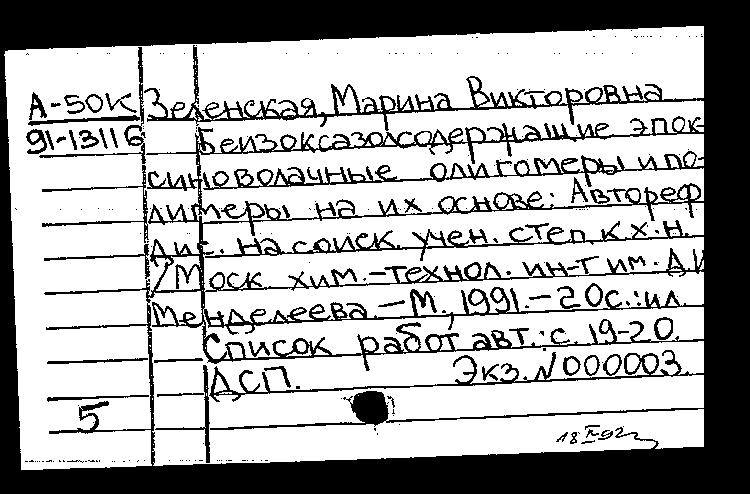 А-50К Зеленская, Марина Викторовна
91-13116 Бензоксазолсодержащие эпок-
синоволачные олигомеры и по-
лимеры на их основе: Автореф
Дис. на соиск. учен. степ. к.х.н.
/Моск. хим.-технол. ин-т им. Д.И
Менделеева.-М., 1991.-20с.:ил.
Список работ авт.: с. 19-20.
ДСП. Экз. N000003.
5